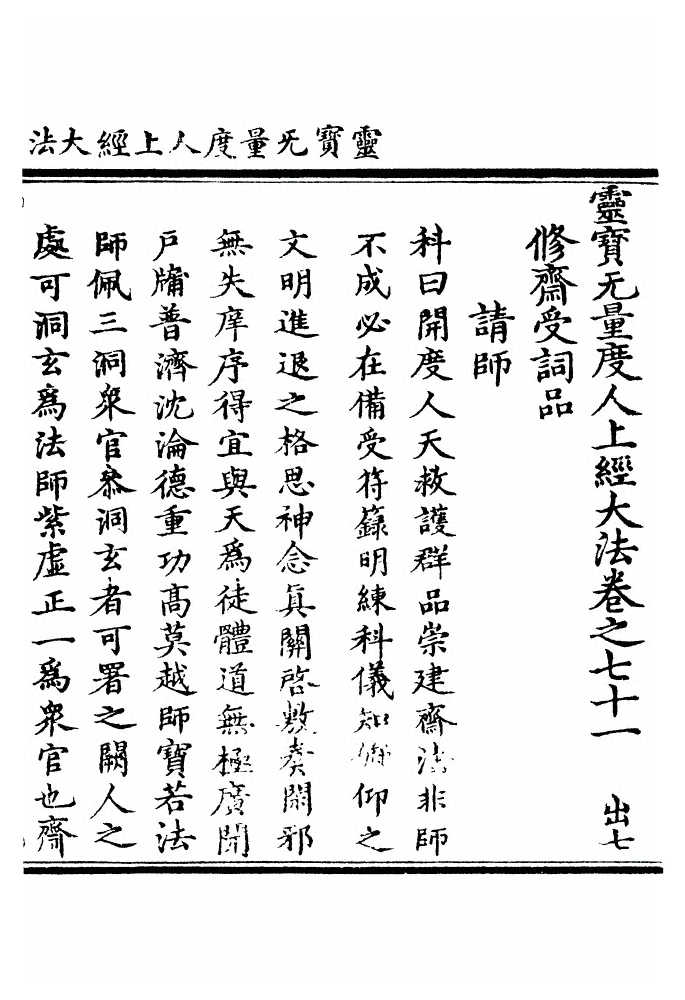 靈寶无量度人上經大法
靈寶无量度人上經大法卷之七十一 出七
修齋受詞品
請師
科曰開度人天救護群品崇建齋法非師
不成必在備受符籙明練科儀知俯仰之
文明進退之格思神念真關啓敷奏閑邪
無失庠序得宜與天為徒體道無極廣開
戶牖普濟沈淪德重功高莫越師寶若法
師佩三洞衆官叅洞玄者可署之闕人之
處可洞玄為法師紫虛正一為衆官也齋